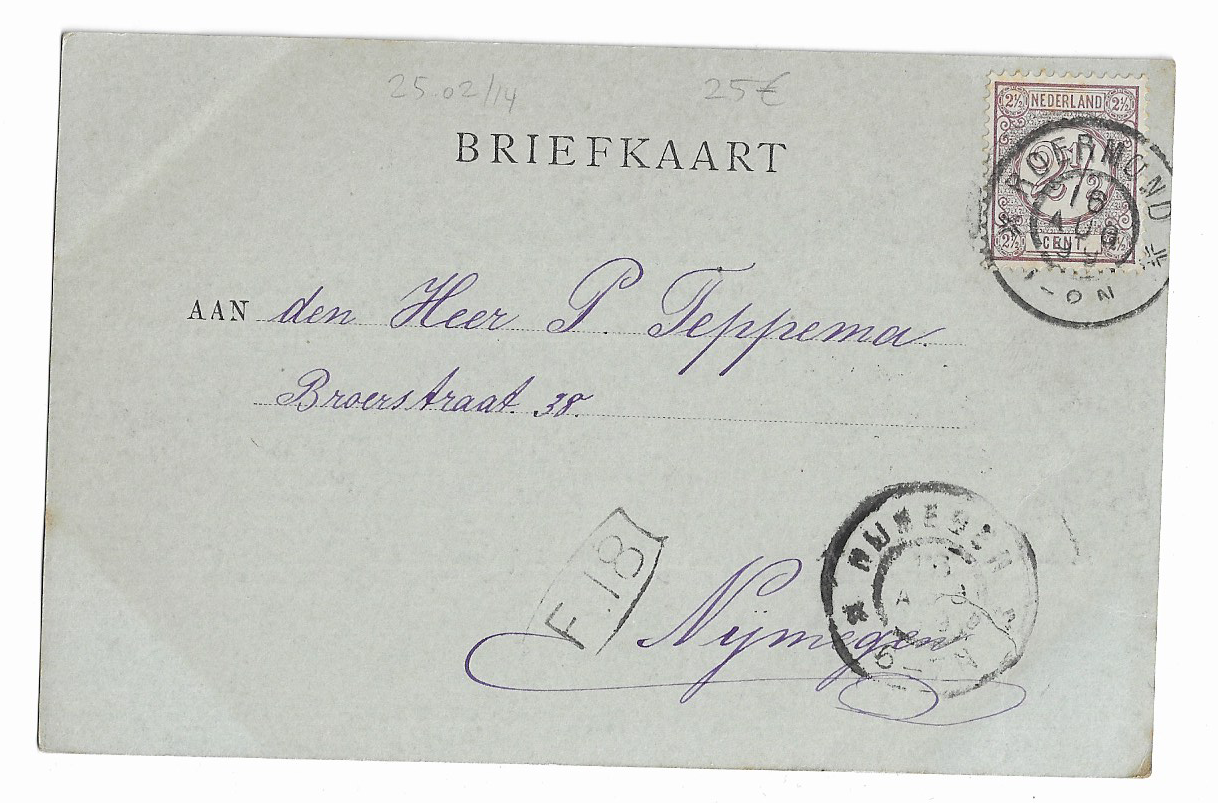 25.02/14 25€
BRIEFKAART
2½ NEDERLAND 2½
2½
2½ CENT 2½
ROERMOND
16
AUG
99
1-2N
AAN den Heer P. Teppema.
Broerstraat. 38.
F.18
Nijmegen
NIJMEGEN